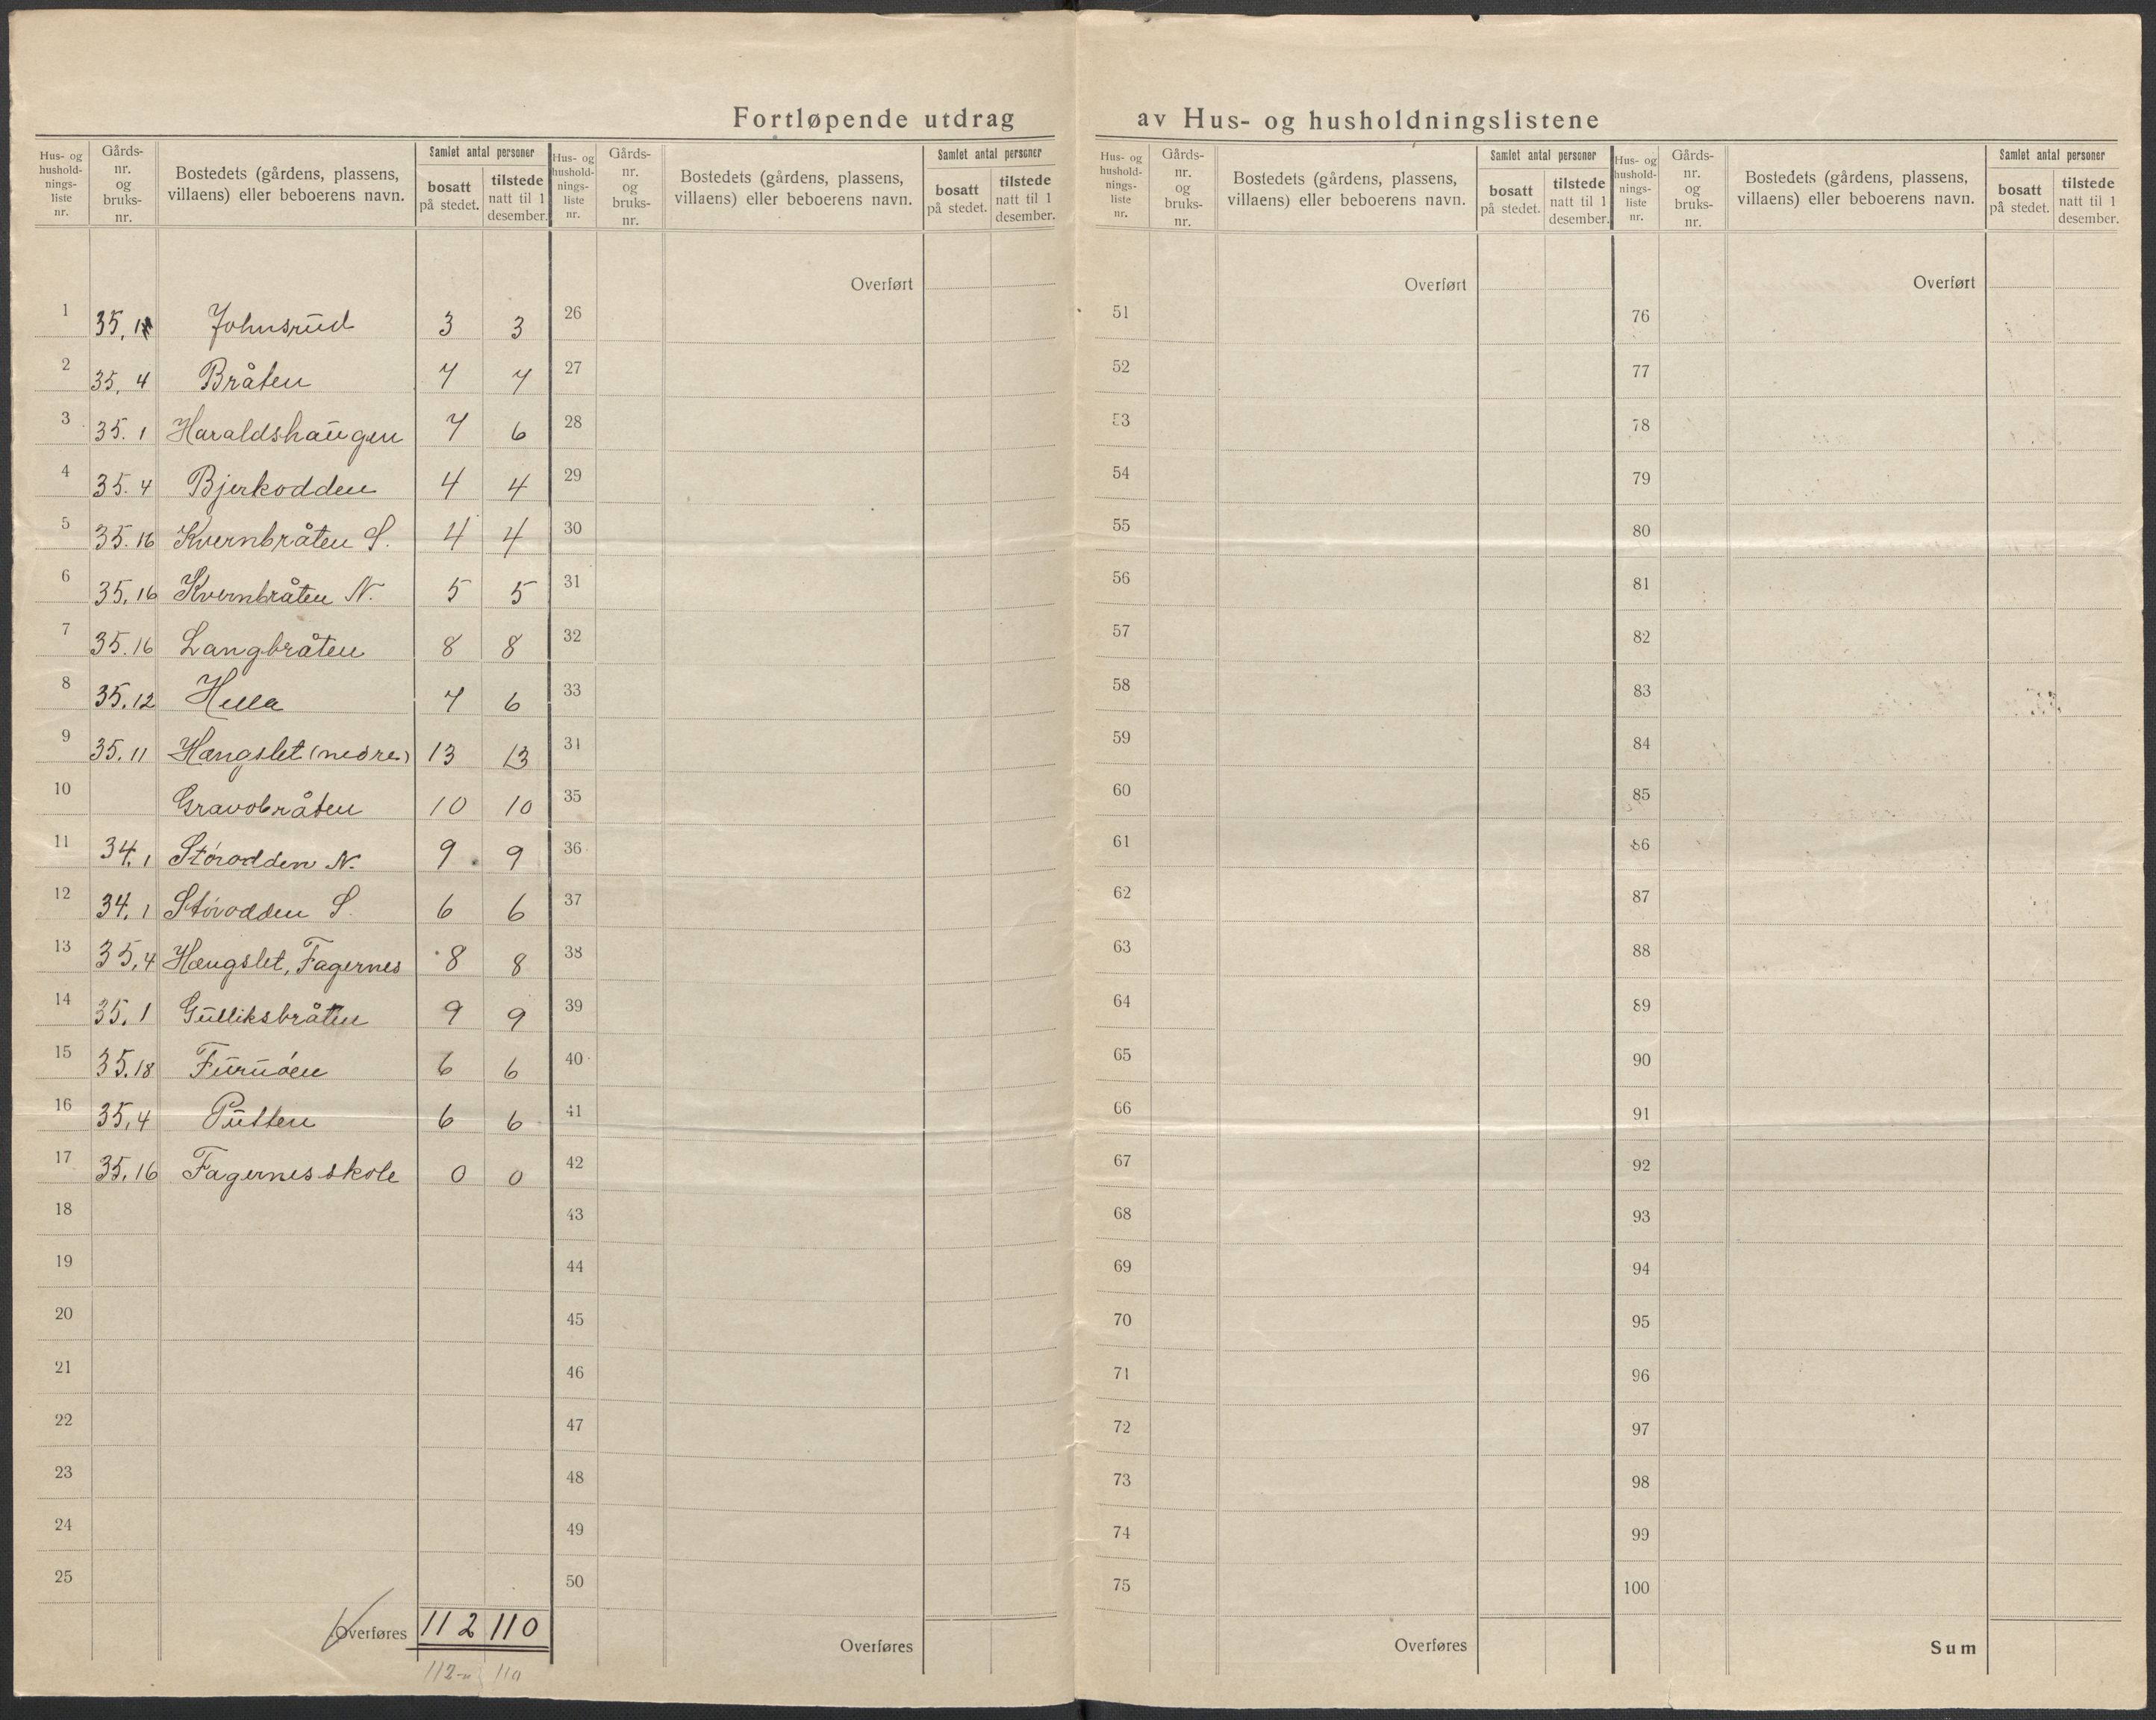 Fortløpende utdrag av Hus- og husholdningslistene
Hus- og hushold-nings-liste nr. Gårds-nr. og bruks-nr. Bostedets (gårdens, plassens, villaens) eller beboerens navn. Samlet antal personer bosatt på stedet. tilstede natt til 1 desember.
Hus- og hushold-nings-liste nr. Gårds-nr. og bruks-nr. Bostedets (gårdens, plassens, villaens) eller beboerens navn. Samlet antal personer bosatt på stedet. tilstede natt til 1 desember.
Hus- og hushold-nings-liste nr. Gårds-nr. og bruks-nr. Bostedets (gårdens, plassens, villaens) eller beboerens navn. Samlet antal personer bosatt på stedet. tilstede natt til 1 desember.
Hus- og hushold-nings-liste nr. Gårds-nr. og bruks-nr. Bostedets (gårdens, plassens, villaens) eller beboerens navn. Samlet antal personer bosatt på stedet. tilstede natt til 1 desember.
1 Johnsrud 3 3
2 35, 4 Bråten 7 7
3 35. 1 Haraldshaugen 7 6
4 35. 4 Bjerkodden 4 4
5 35. 16 Kvernbråten S. 4 4
6 35, 16 Kvernbråten N. 5 5
7 35. 16 Langbråten 8 8
8 35. 12 Hella 7 6
9 35. 11 Hængslet (nedre) 13 13
10 Gravobråten 10 10
11 34. 1 Störodden N. 9 9
12 34. 1 Störodden S. 6 6
13 35, 4 Hængslet, Fagernes 8 8
14 35. 1 Gulliksbråten 9 9
15 35. 18 Furuöen 6 6
16 35, 4 Putten 6 6
17 35, 16 Fagernes skole 0 0
18
19
20
21
22
23
24
25
Overføres 112 110
112 110
Overført
26
27
28
29
30
31
32
33
34
35
36
37
38
39
40
41
42
43
44
45
46
47
48
49
50
Overføres
Overført
51
52
53
54
55
56
57
58
59
60
61
62
63
64
65
66
67
68
69
70
71
72
73
74
75
Overføres
Overført
76
77
78
79
80
81
82
83
84
85
86
87
88
89
90
91
92
93
94
95
96
97
98
99
100
Sum